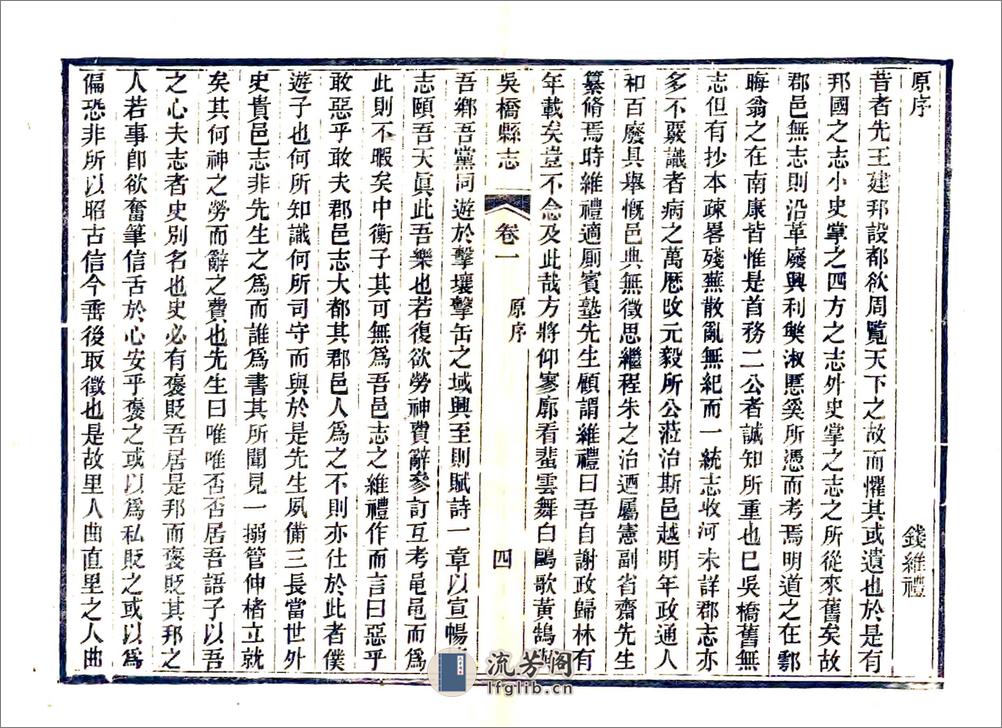 原序
錢維禮
昔者先王建邦設都欲周覽天下之故而懼其或遺也於是有
邦國之志小史掌之四方之志外史掌之志之所從來舊矣故
郡邑無志則沿革廢興利獘淑慝奚所憑而考焉明道之在鄠
晦翁之在南康皆惟是首務二公者誠知所重也巳吳橋舊無
志但有抄本疎畧殘蕪散亂無紀而一統志收河未詳郡志亦
多不覈識者病之萬歷攺元毅所公蒞治斯邑越明年政通人
和百廢具舉慨邑典無徵思繼程朱之治迺屬憲副省齋先生
纂脩焉時維禮適厠賓塾先生顧謂維禮曰吾自謝政歸林有
年載矣豈不念及此哉方將仰寥廓看蜚雲舞白鷗歌黃鵠
吳橋縣志
卷一
原序
四
吾鄉吾黨同遊於擊壤擊缶之域興至則賦詩一章以宣暢
志頤吾天眞此吾樂也若復欲勞神費辭參訂互考黽黽而爲
此則不暇矣中衡子其可無爲吾邑志之維禮作而言曰惡乎
敢惡乎敢夫郡邑志大都其郡邑人爲之不則亦仕於此者僕
遊子也何所知識何所司守而與於是先生夙備三長當世外
史貴邑志非先生之爲而誰爲書其所聞見一搦管伸楮立就
矣其何神之勞而辭之費也先生曰唯唯否否居吾語子以吾
之心夫志者史別名也史必有褒貶吾居是邦而褒貶其邦之
人若事卽欲奮筆信舌於心安乎褒之或以爲私貶之或以爲
偏恐非所以昭古信今垂後取徵也是故里人曲直里之人曲
流芳閣
lfglib.cn